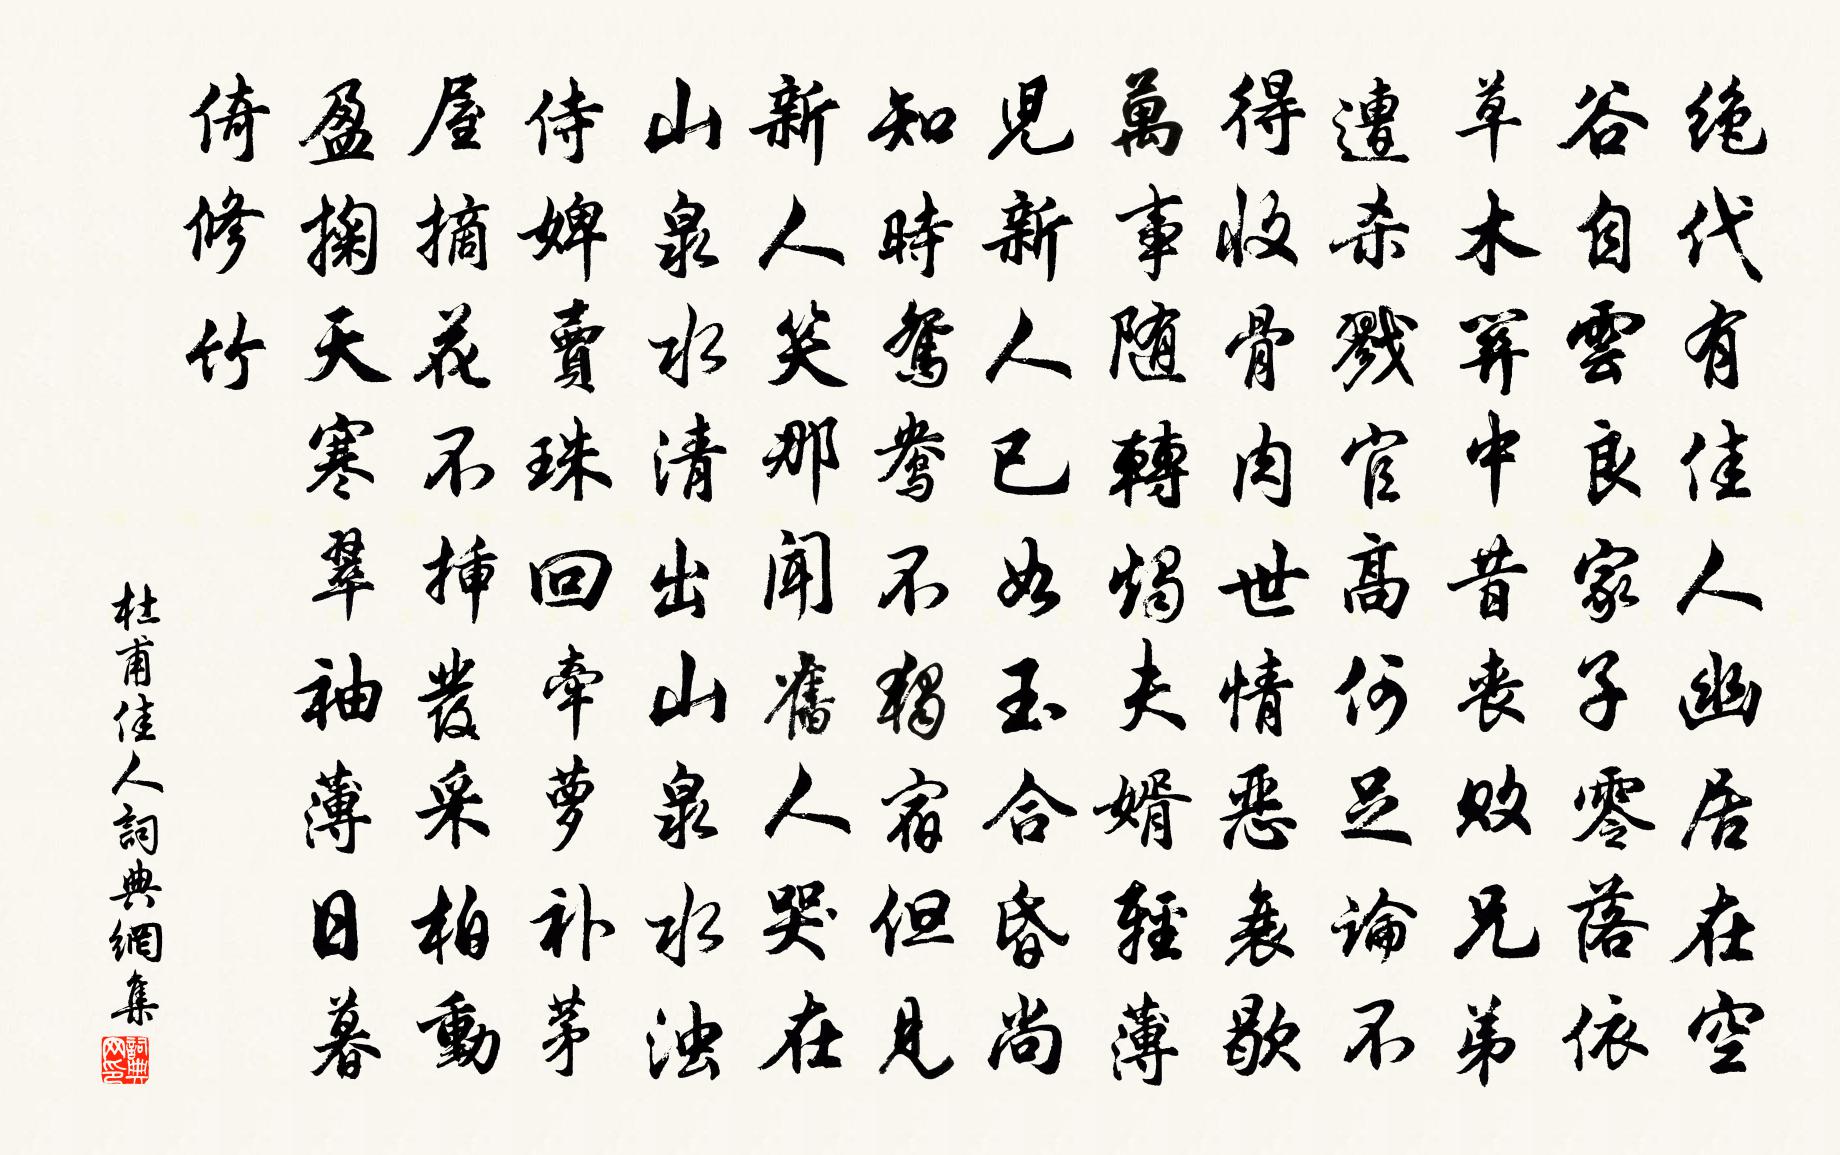 绝代有佳人幽居在空
谷自雲良家子零落依
草木関中昔丧败兄弟
遭杀戮官高何足論不
得收骨肉世情恶衰歇
萬事随轉燭夫婿輕薄
児新人已如玉合昏尚
知時鸳鸯不独宿但見
新人笑那闻舊人哭在
山泉水清出山泉水浊
侍婢賣珠回牵萝补茅
屋摘花不插發采柏動
盈掬天寒翠袖薄日暮
倚修竹
杜甫佳人詞典網集
詞典网